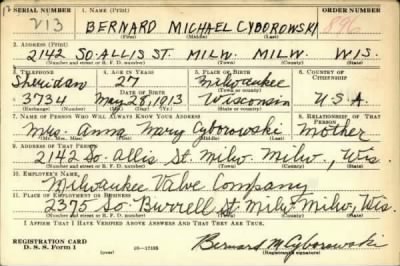 SERIAL NUMBER 1. NAME (Print) ORDER NUMBER
V13 BERNARD MICHAEL CYBOROWSKI 896
(First) (Middle) (Last)
2. ADDRESS (Print)
2142 SO. ALLIS ST. MILW. MILW. WIS.
(Number and street or R. F. D. number) (Town) (County) (State)
3. TELEPHONE 4. AGE IN YEARS 5. PLACE OF BIRTH 6. COUNTRY OF CITIZENSHIP
Sheridan 27 Milwaukee
DATE OF BIRTH (Town or county)
3734 May 28, 1913 Wisconsin U.S.A.
(Exchange) (Number) (Mo.) (Day) (Yr.) (State or country)
7. NAME OF PERSON WHO WILL ALWAYS KNOW YOUR ADDRESS 8. RELATIONSHIP OF THAT PERSON
Mrs. Anna Mary Cyborowski Mother
(Mr., Mrs., Miss) (First) (Middle) (Last)
9. ADDRESS OF THAT PERSON
2142 So. Allis St. Milw. Milw., Wis.
(Number and street or R. F. D. number) (Town) (County) (State)
10. EMPLOYER'S NAME
Milwaukee Valve Company
11. PLACE OF EMPLOYMENT OR BUSINESS
2375 So. Burrell St. Milw. Milw., Wis.
(Number and street or R. F. D. number) (Town) (County) (State)
I AFFIRM THAT I HAVE VERIFIED ABOVE ANSWERS AND THAT THEY ARE TRUE.
REGISTRATION CARD
D. S. S. Form 1 16—17105 Bernard M Cyborowski
(Registrant's signature)